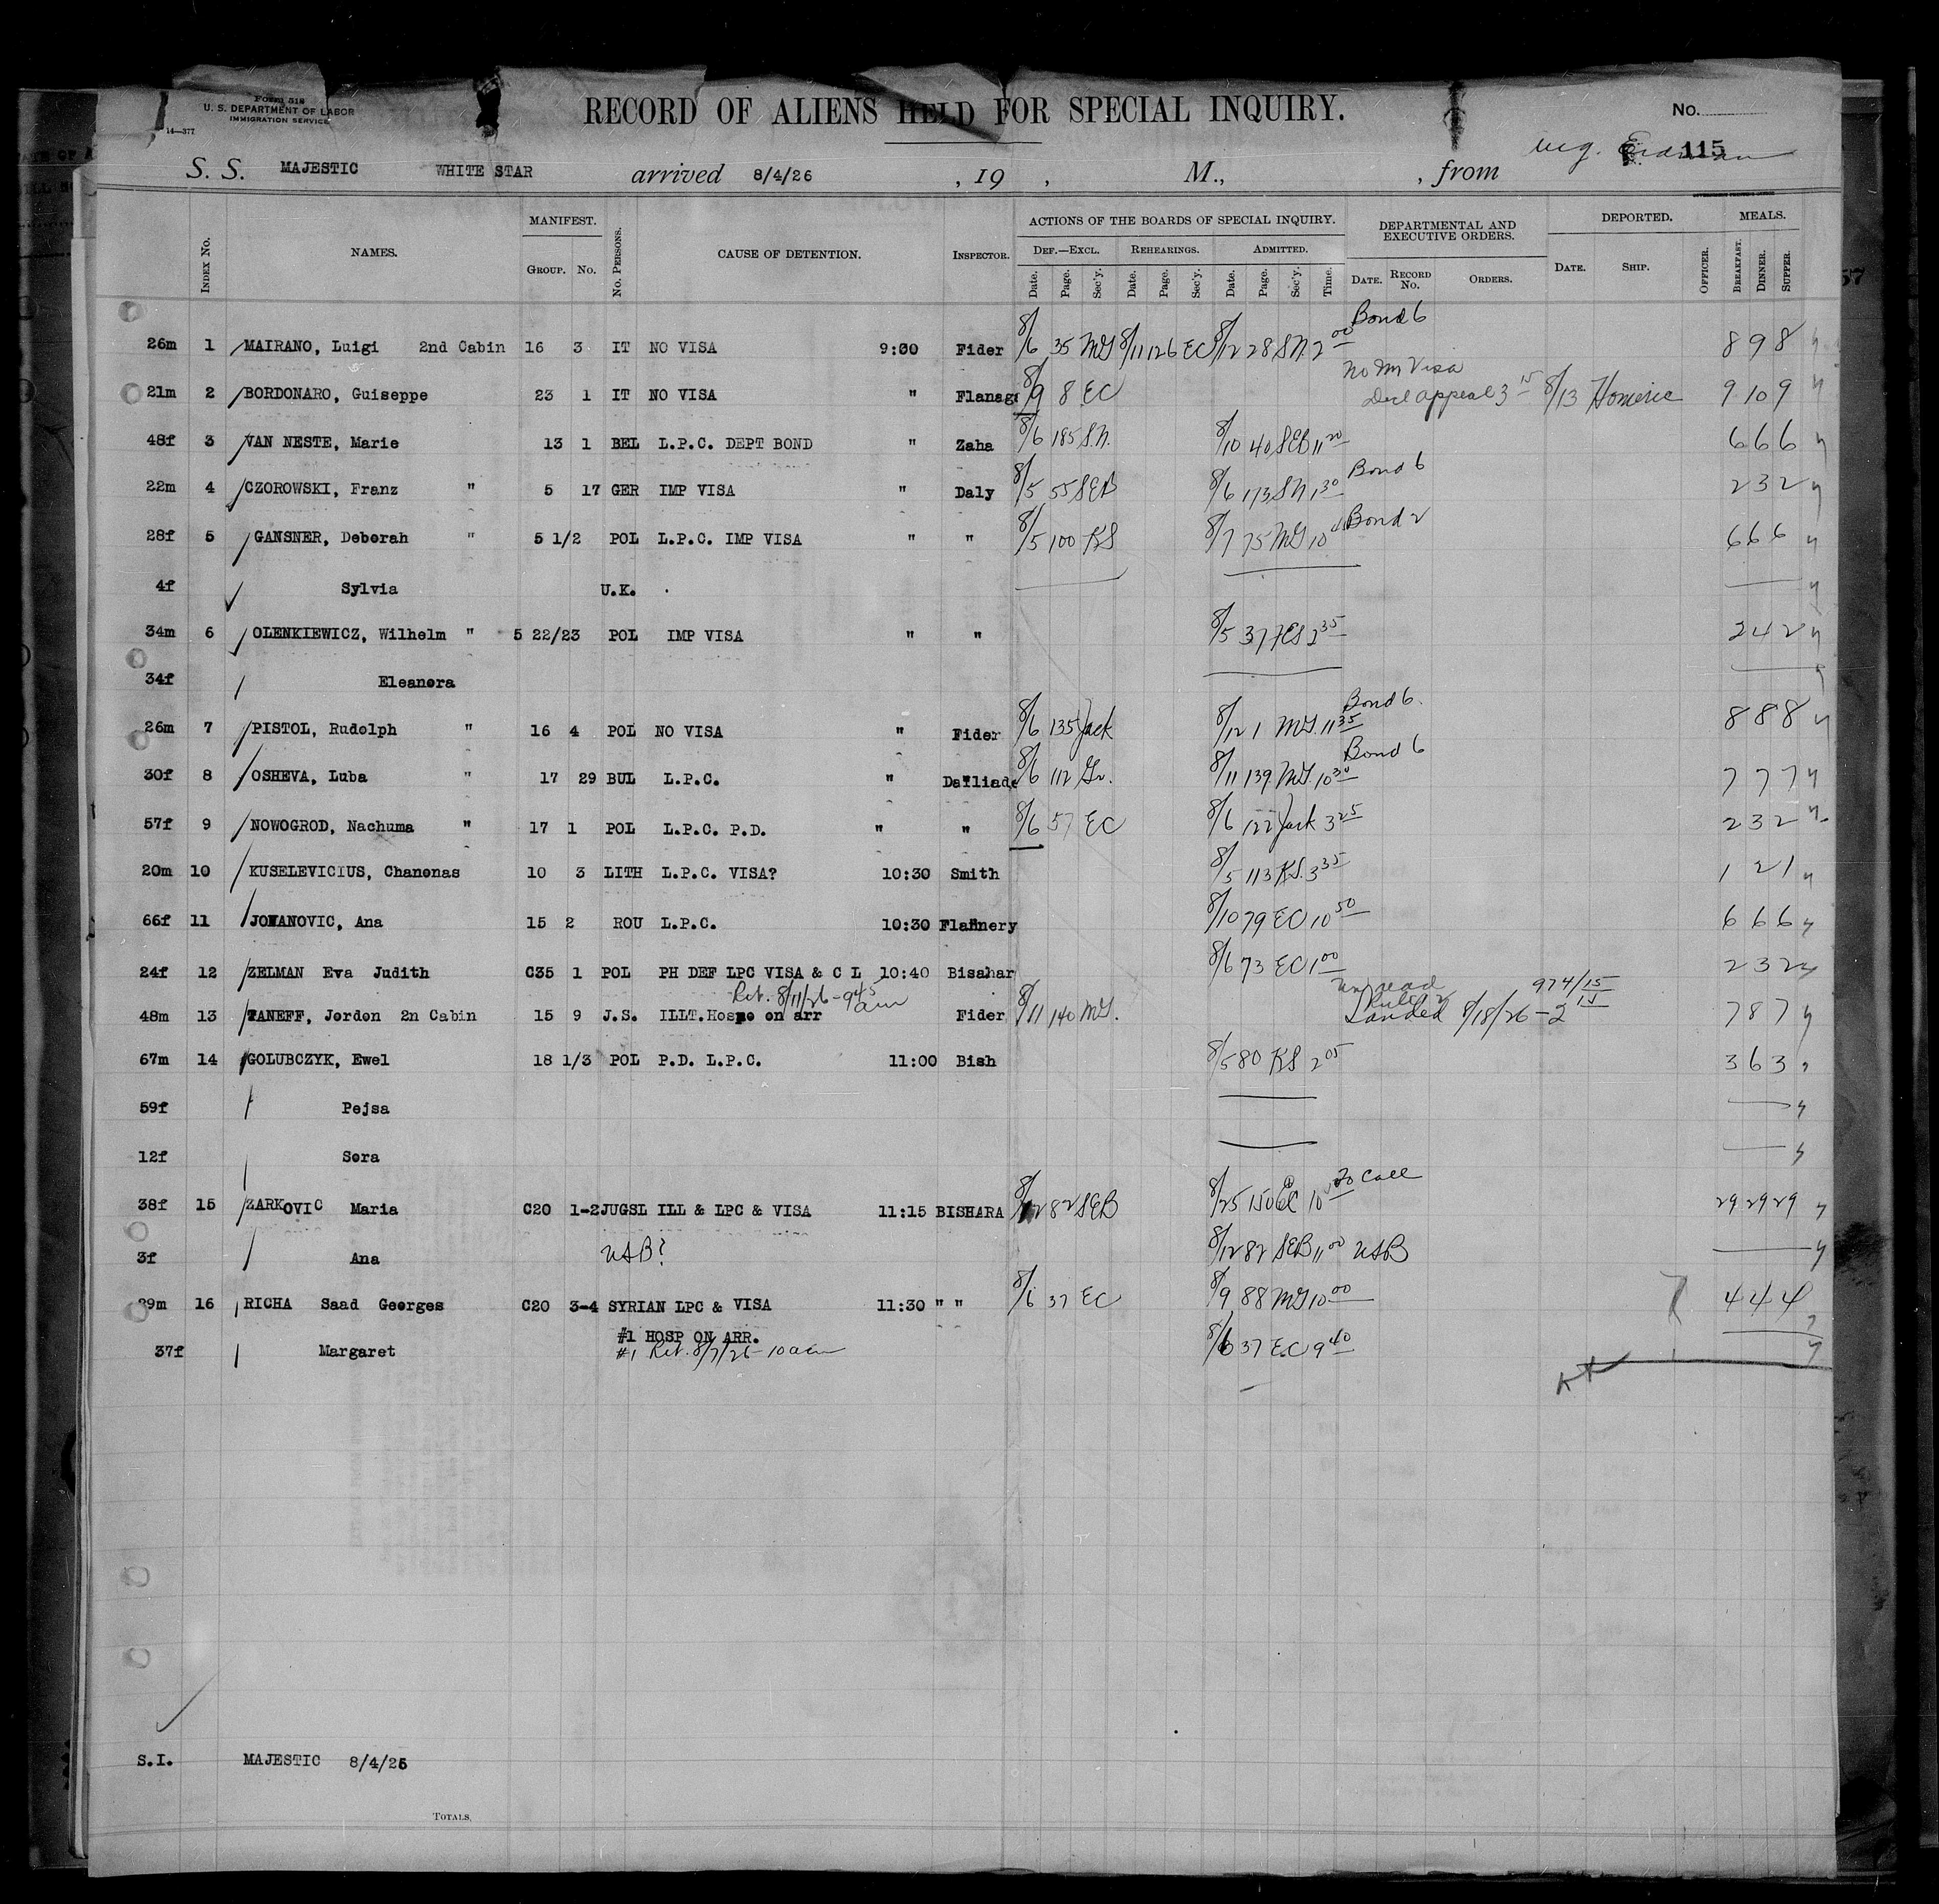 Form 518
U. S. DEPARTMENT OF LABOR
IMMIGRATION SERVICE
14—377
RECORD OF ALIENS HELD FOR SPECIAL INQUIRY.
No.
115
S. S. MAJESTIC WHITE STAR arrived 8/4/26 , 19 , M., , from
INDEX No. NAMES. MANIFEST. GROUP. No. No. PERSONS. CAUSE OF DETENTION. INSPECTOR. ACTIONS OF THE BOARDS OF SPECIAL INQUIRY. DEF.—EXCL. Date. Page. Sec'y. REHEARINGS. Date. Page. Sec'y. ADMITTED. Date. Page. Sec'y. Time. DEPARTMENTAL AND EXECUTIVE ORDERS. DATE. RECORD No. ORDERS. DEPORTED. DATE. SHIP. OFFICER. MEALS. BREAKFAST. DINNER. SUPPER.
Bond 6
26m 1 MAIRANO, Luigi 2nd Cabin 16 3 IT NO VISA 9:00 Fider 8/6 35 MG 8/11 126 EC 8/12 28 S.N. 2 00 8 9 8
No Im Visa
21m 2 BORDONARO, Guiseppe 23 1 IT NO VISA " Flanag 8/9 8 EC Decl appeal 3 15 8/13 Homeric 9 10 9
48f 3 VAN NESTE, Marie 13 1 BEL L.P.C. DEPT BOND " Zaha 8/6 185 S.N. 8/10 40 SEB 11 20 6 6 6
Bond 6
22m 4 CZOROWSKI, Franz " 5 17 GER IMP VISA " Daly 8/5 55 SEB 8/6 173 S N 1 30 2 3 2
Bond 2
28f 5 GANSNER, Deborah " 5 1/2 POL L.P.C. IMP VISA " " 8/5 100 KS 8/7 75 MG 10 6 6 6
4f Sylvia U.K.
34m 6 OLENKIEWICZ, Wilhelm " 5 22/23 POL IMP VISA " " 8/5 37 2 35 2 4 2
34f Eleanora
Bond 6.
26m 7 PISTOL, Rudolph " 16 4 POL NO VISA " Fider 8/6 135 Jack 8/12 1 MG. 11 35 8 8 8
Bond 6
30f 8 OSHEVA, Luba " 17 29 BUL L.P.C. " Dalliade 8/6 112 Gr. 8/11 139 MG. 10 30 7 7 7
57f 9 NOWOGROD, Nachuma " 17 1 POL L.P.C. P.D. " " 8/6 57 EC 8/6 122 Jack 3 25 2 3 2
20m 10 KUSELEVICIUS, Chanonas 10 3 LITH L.P.C. VISA? 10:30 Smith 8/5 113 KS. 3 35 1 2 1
66f 11 JOWANOVIC, Ana 15 2 ROU L.P.C. 10:30 Flannery 8/10 79 EC 10 50 6 6 6
24f 12 ZELMAN Eva Judith C35 1 POL PH DEF LPC VISA & C L 10:40 Bisahar 8/6 73 EC 1 00 2 3 2
Ret. 8/11/26 - 9 45 am
974/15
48m 13 TANEFF, Jordon 2n Cabin 15 9 J.S. ILLT. Hosp on arr Fider 8/11 140 MG. Landed 8/18/26 - 2 15 7 8 7
67m 14 GOLUBCZYK, Ewel 18 1/3 POL P.D. L.P.C. 11:00 Bish 8/5 80 KS 2 05 3 6 3
59f Pejsa
12f Sora
38f 15 ZARKOVIC Maria C20 1-2 JUGSL ILL & LPC & VISA 11:15 BISHARA 8/12 82 SEB 8/25 150 EC 10 To Call 29 29 29
3f Ana USB? 8/12 82 SEB 11 00 USB
29m 16 RICHA Saad Georges C20 3-4 SYRIAN LPC & VISA 11:30 " " 8/6 37 EC 8/9 88 MG 10 00 4 4 4
#1 HOSP ON ARR.
37f Margaret #1 Ret. 8/7/26 - 10 am 8/6 37 EC 9 40
S.I. MAJESTIC 8/4/26
TOTALS.